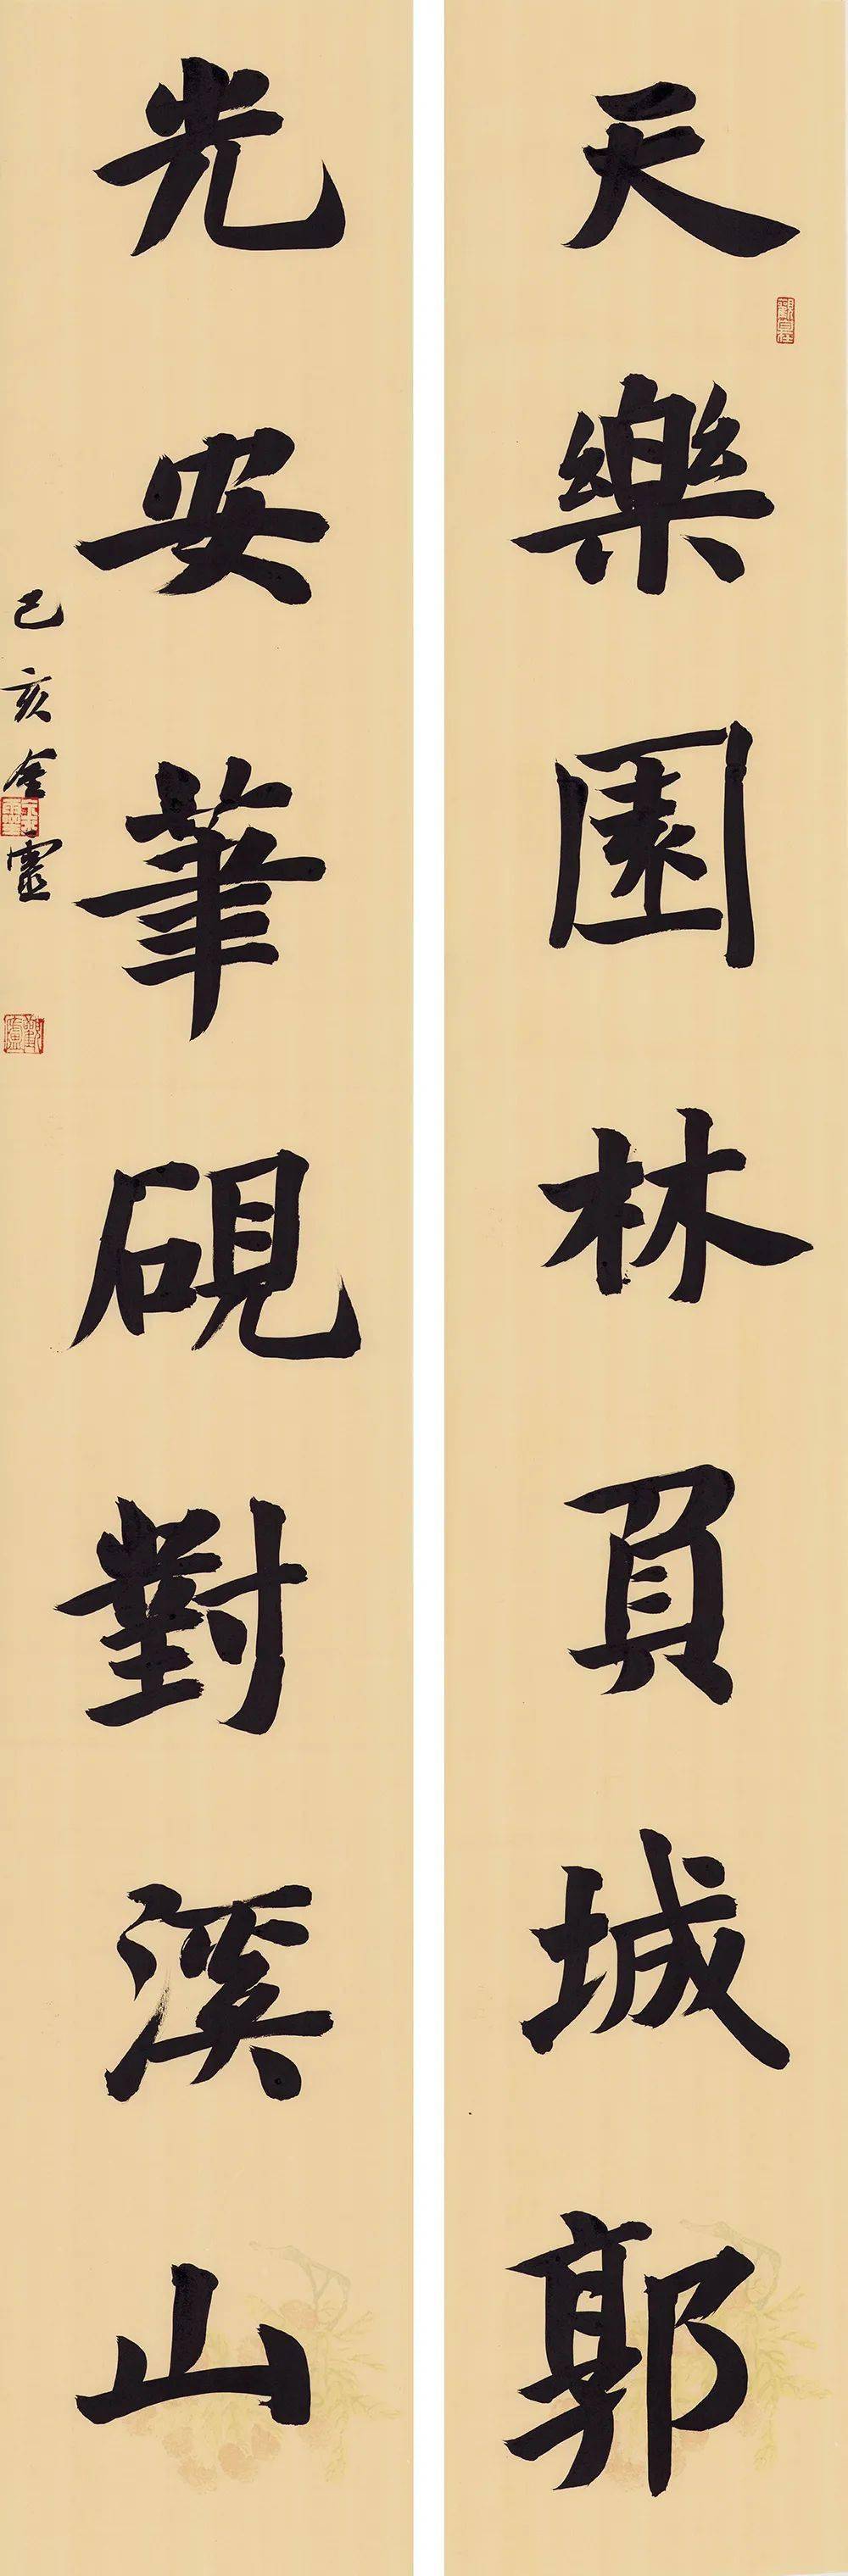 天樂園林負城郭
光安筆硯對溪山
己亥金靈